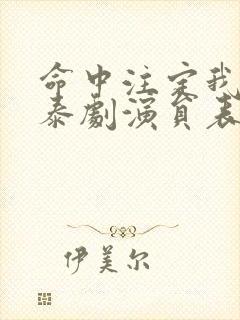 命中注定我
泰劇演員表
伊美尔